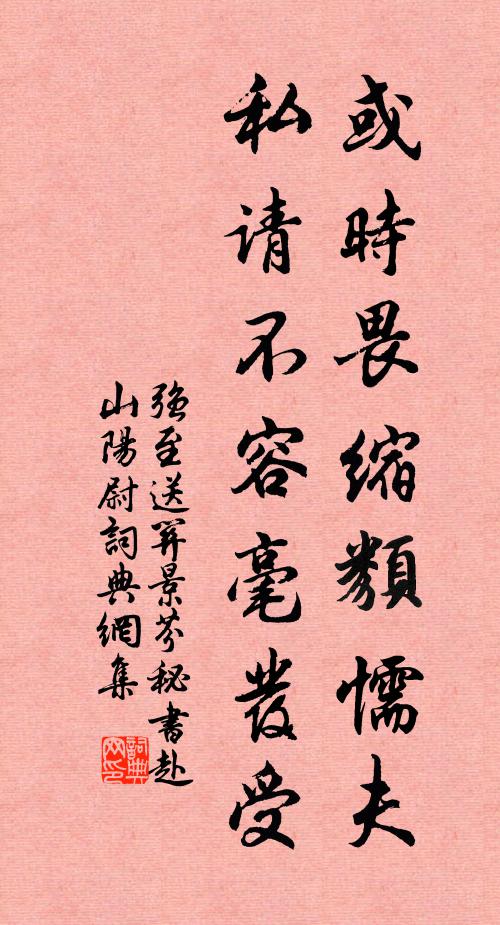 或時畏縮類懦夫
私请不容毫發受
強至送羿景芬秘書赴
山陽尉詞典網集
詞典
网印